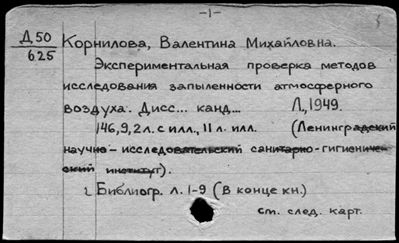 -1-
Д 50
625
Корнилова, Валентина Михайловна.
Экспериментальная проверка методов
исследования запыленности атмосферного
воздуха. Дисс... канд... Л., 1949.
146, 9, 2 л. с илл., 11 л. илл. (Ленинградский
научно-исследовательский санитарно-гигиениче-
ский институт).
Библиогр. л. 1-9 (в конце кн.)
см. след. карт.